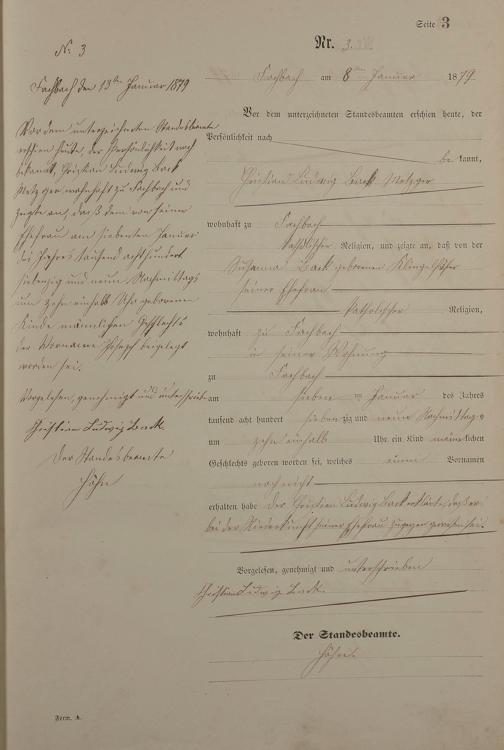 Seite 3
Nr. 3.
Fachbach am 8ten Januar 1879
Vor dem unterzeichneten Standesbeamten erschien heute, der
Persönlichkeit nach
be kannt,
Christian Ludwig Back Metzger
wohnhaft zu Fachbach
katholischer Religion, und zeigte an, daß von der
Susanna Back geborenen Klingelhöfer
seiner Ehefrau
katholischer Religion,
wohnhaft zu Fachbach
in seiner Wohnung
zu Fachbach
am sieben ten Januar des Jahres
tausend acht hundert sieben zig und neun Nachmittags
um zehn einhalb Uhr ein Kind männlichen
Geschlechts geboren worden sei, welches einen Vornamen
noch nicht
erhalten habe Der Christian Ludwig Back erklärte, daß er
bei der Niederkunft seiner Ehefrau zugegen gewesen sei.
Vorgelesen, genehmigt und unterschrieben
Christian Ludwig Back
Der Standesbeamte.
Höhn
Form. A.
No 3
Fachbach den 13ten Januar 1879
Vor dem unterzeichneten Standesbeamten
erschien heute, der Persönlichkeit nach
bekannt, Christian Ludwig Back
Metzger wohnhaft zu Fachbach und
zeigte an, daß dem von seiner
Ehefrau am siebenten Januar
des Jahres tausend acht hundert
siebenzig und neun Nachmittags
um zehn einhalb Uhr geborenen
Kinde männlichen Geschlechts
der Vorname Joseph beigelegt
worden sei.
Vorgelesen, genehmigt und unterschrieben
Christian Ludwig Back
Der Standesbeamte
Höhn